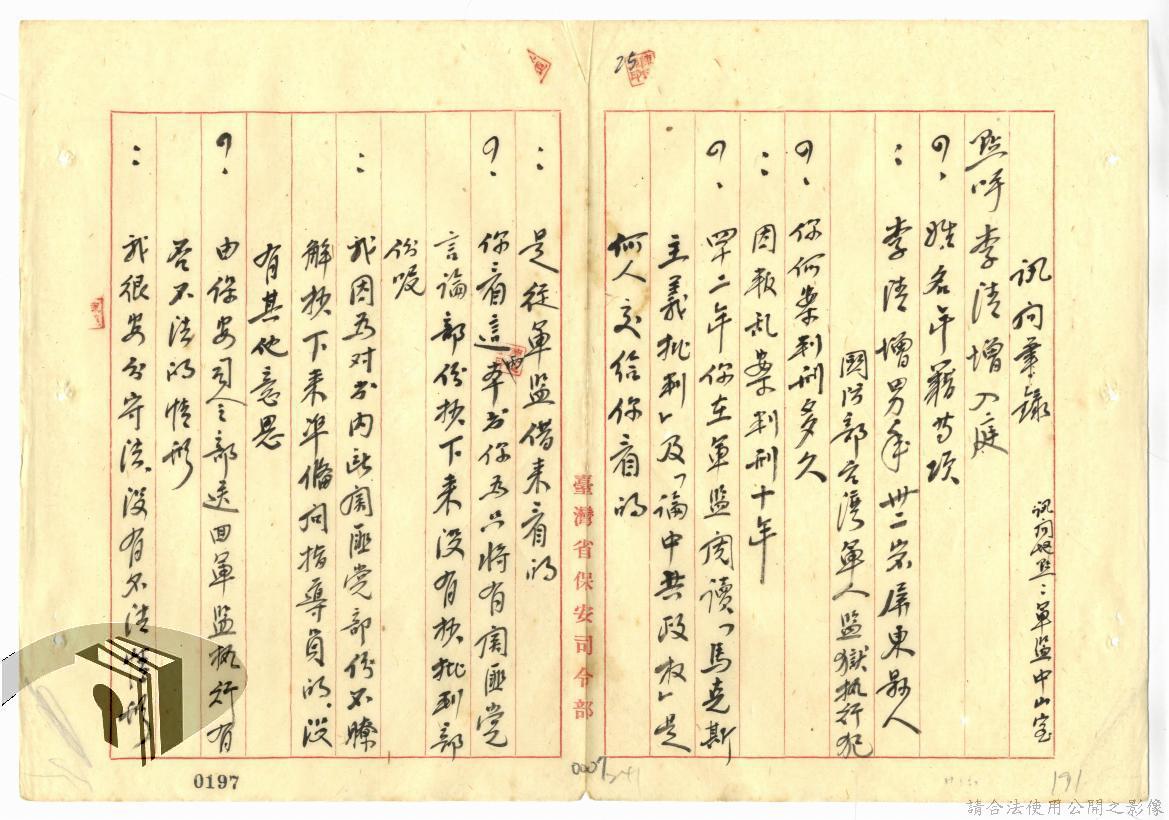 訊問筆錄
訊問地點：軍監中山室
點呼李清增入庭
問、姓名年籍等項
：李清增男年卅二岁屏東縣人
國防部台湾軍人監獄执行犯
問、你何案判刑多久
：因叛乱案判刑十年
問、四十二年你在軍監閱讀「馬克斯
主義批判」及「論中共政权」是
何人交给你看的
：是從軍監借來看的
問、你看這兩本书你為只將有関匪党
言論部份抄下来没有抄批判部
份呢
：我因為对书内此関匪党部份不瞭
解抄下来準備问指導員的、没
有其他意思
問、由保安司令部送回軍監执行有
否不法的情形
：我很安分守法、没有不法情形
臺灣省保安司令部
25
0197
191
請合法使用公開之影像